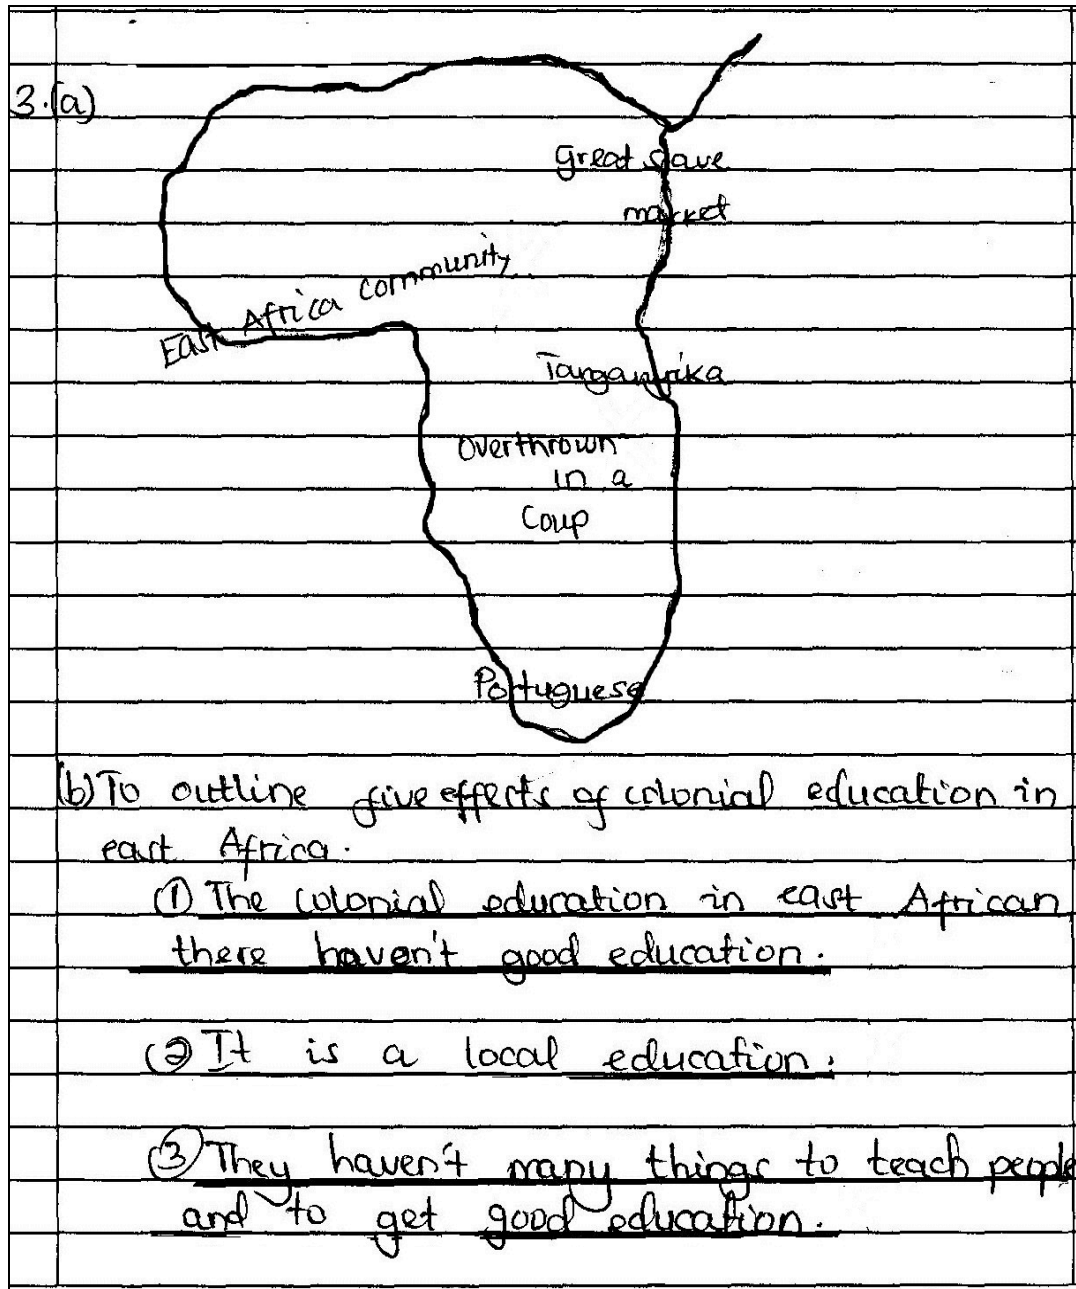 3.(a)
Great slave
market
East Africa community
Tanganyika
Overthrown
in a
Coup
Portuguese
(b) To outline five effects of colonial education in
east Africa.
(1) The colonial education in east African
there haven't good education.
(2) It is a local education.
(3) They haven't many things to teach people
and to get good education.